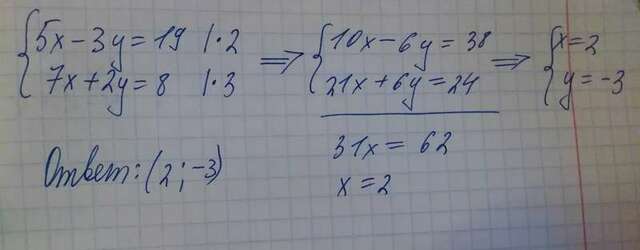 5x-3y=19 |·2
7x+2y=8 |·3
⇒
10x-6y=38
21x+6y=24
31x=62
x=2
⇒
x=2
y=-3
Ответ: (2; -3)